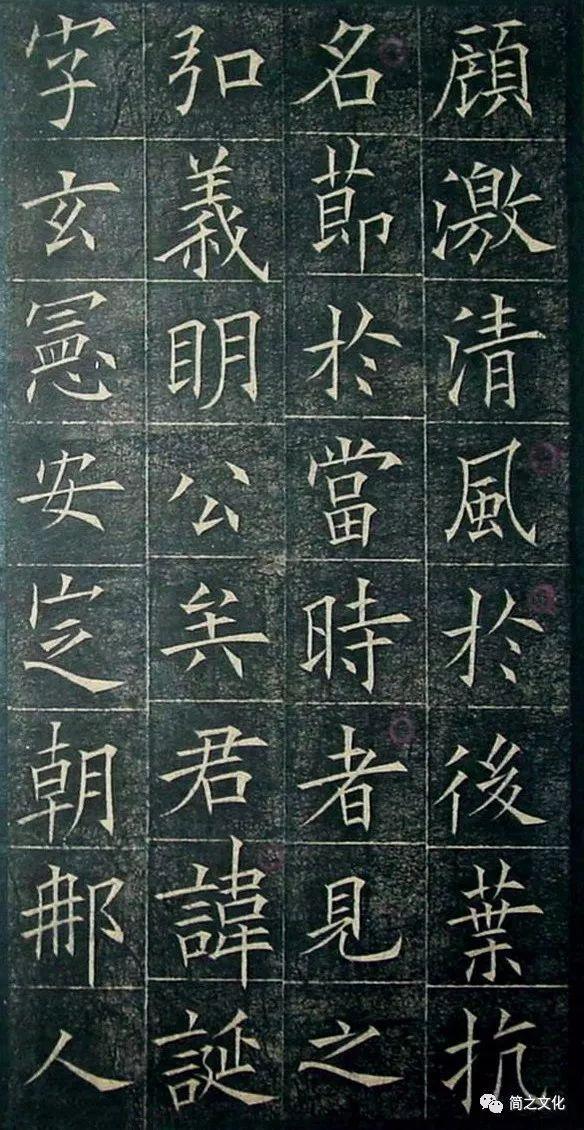 顧激清風於後葉抗
名莭於當時者見之
弘義明公矣君諱誕
字玄憲安定朝𨙻人
简之文化